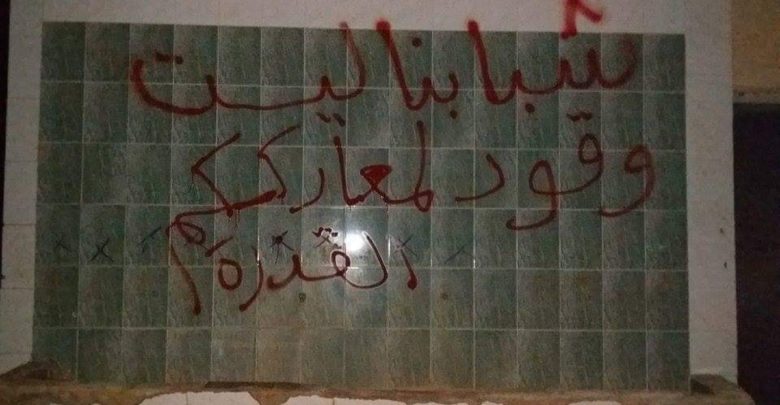 شبابنا ليست
وقود لمعارككم
القذرة